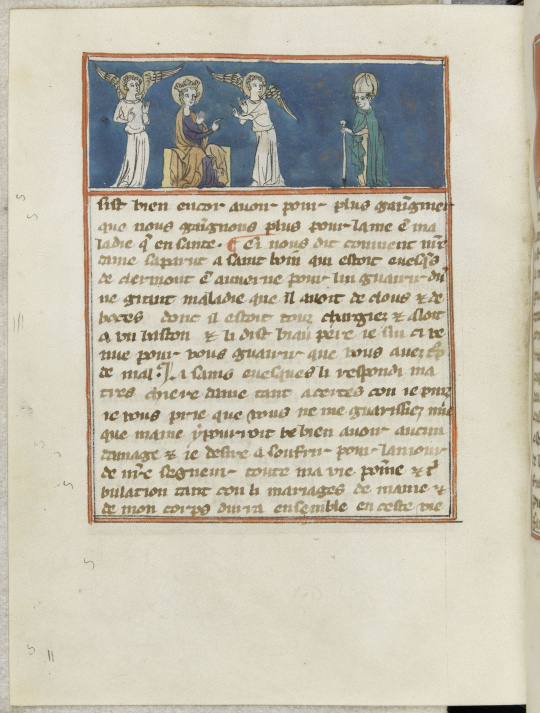 sist bien encor auoir pour plus gaaignier
que nous gaaignons plus pour lame en ma
ladie q̄ en sante. ¶ Ci nous dit conment nr̄e
dame saparut a saint bon qui estoit euesq̄s
de clermont en auuerne pour lui guarir dū
ne grant maladie que il auoit de clous ⁊ de
boces donc il estoit touz chargiez ⁊ aloit
a un baston ⁊ li dist biau pere ie sui ci ve
nue pour vous guarir que vous auez
de mal. Li sains euesques li respondi ma
tres chiere dame tant acertes con ie puis
ie vous prie que vous ne me guarissiez mie
que mame y pourroit bien auoir aucun
damage ⁊ ie desire a soufrir pour lamour
de nr̄e seigneur toute ma vie poīne ⁊ t
bulation tant con li mariages de mame ⁊
de mon corps durra ensemble en ceste vie